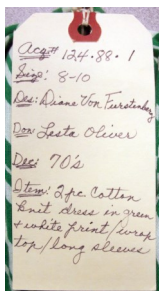 Acq# 124.88.1
Size: 8-10
Des: Diane Von Furstenberg
Don: Lesta Oliver
Dec: 70's
Item: 2pc Cotton
knit dress in green
+ white print/wrap
top/long sleeves